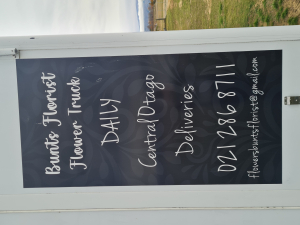 Bunts Florist
Flower Truck
DAILY
Central Otago
Deliveries
021 286 8711
flowersbuntsflorist@gmail.com